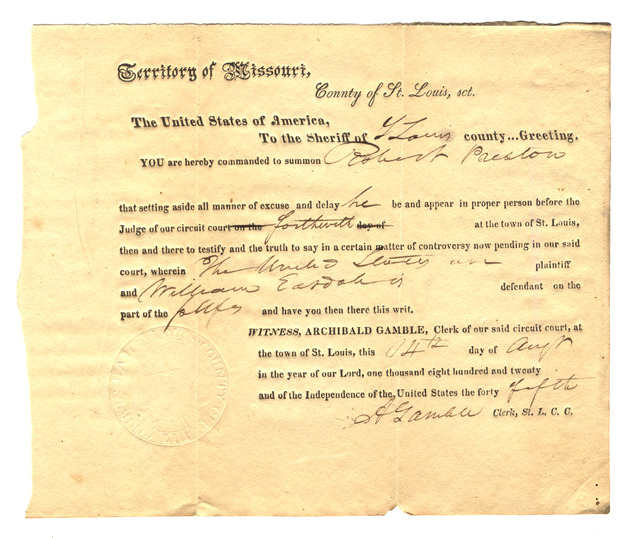 Territory of Missouri,
Connty of St. Louis, sct.
The United States of America,
To the Sheriff of St Louis county...Greeting.
YOU are hereby commanded to summon Robert Preston
that setting aside all manner of excuse and delay he be and appear in proper person before the
Judge of our circuit court on the forthwith day of at the town of St. Louis,
then and there to testify and the truth to say in a certain matter of controversy now pending in our said
court, wherein The United States are plaintiff
and William Easdale is defendant on the
part of the pltfs and have you then there this writ.
WITNESS, ARCHIBALD GAMBLE, Clerk of our said circuit court, at
the town of St. Louis, this 14th day of Augt
in the year of our Lord, one thousand eight hundred and twenty
and of the Independence of the United States the forty fifth
A Gamble Clerk, St. L. C. C.